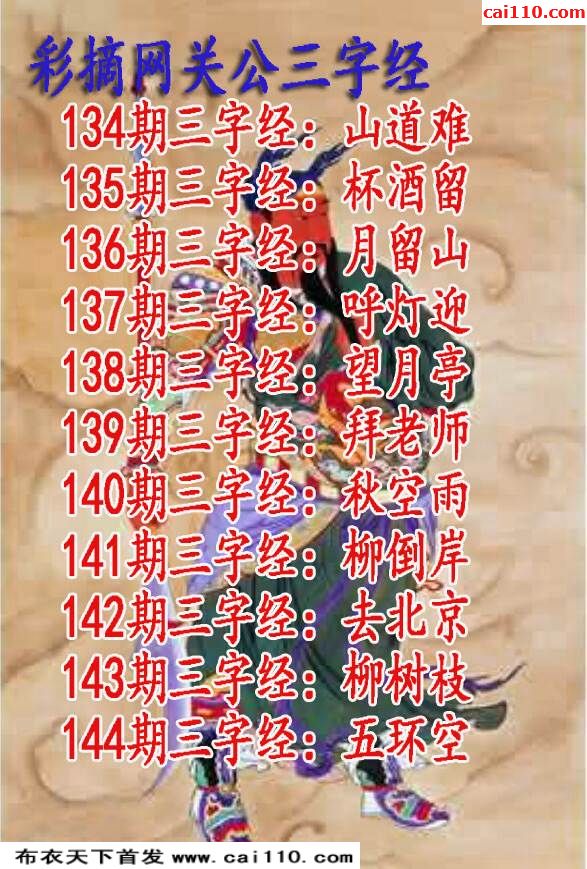 cai110.com
彩摘网关公三字经
134期三字经：山道难
135期三字经：杯酒留
136期三字经：月留山
137期三字经：呼灯迎
138期三字经：望月亭
139期三字经：拜老师
140期三字经：秋空雨
141期三字经：柳倒岸
142期三字经：去北京
143期三字经：柳树枝
144期三字经：五环空
布衣天下首发 www.cai110.com